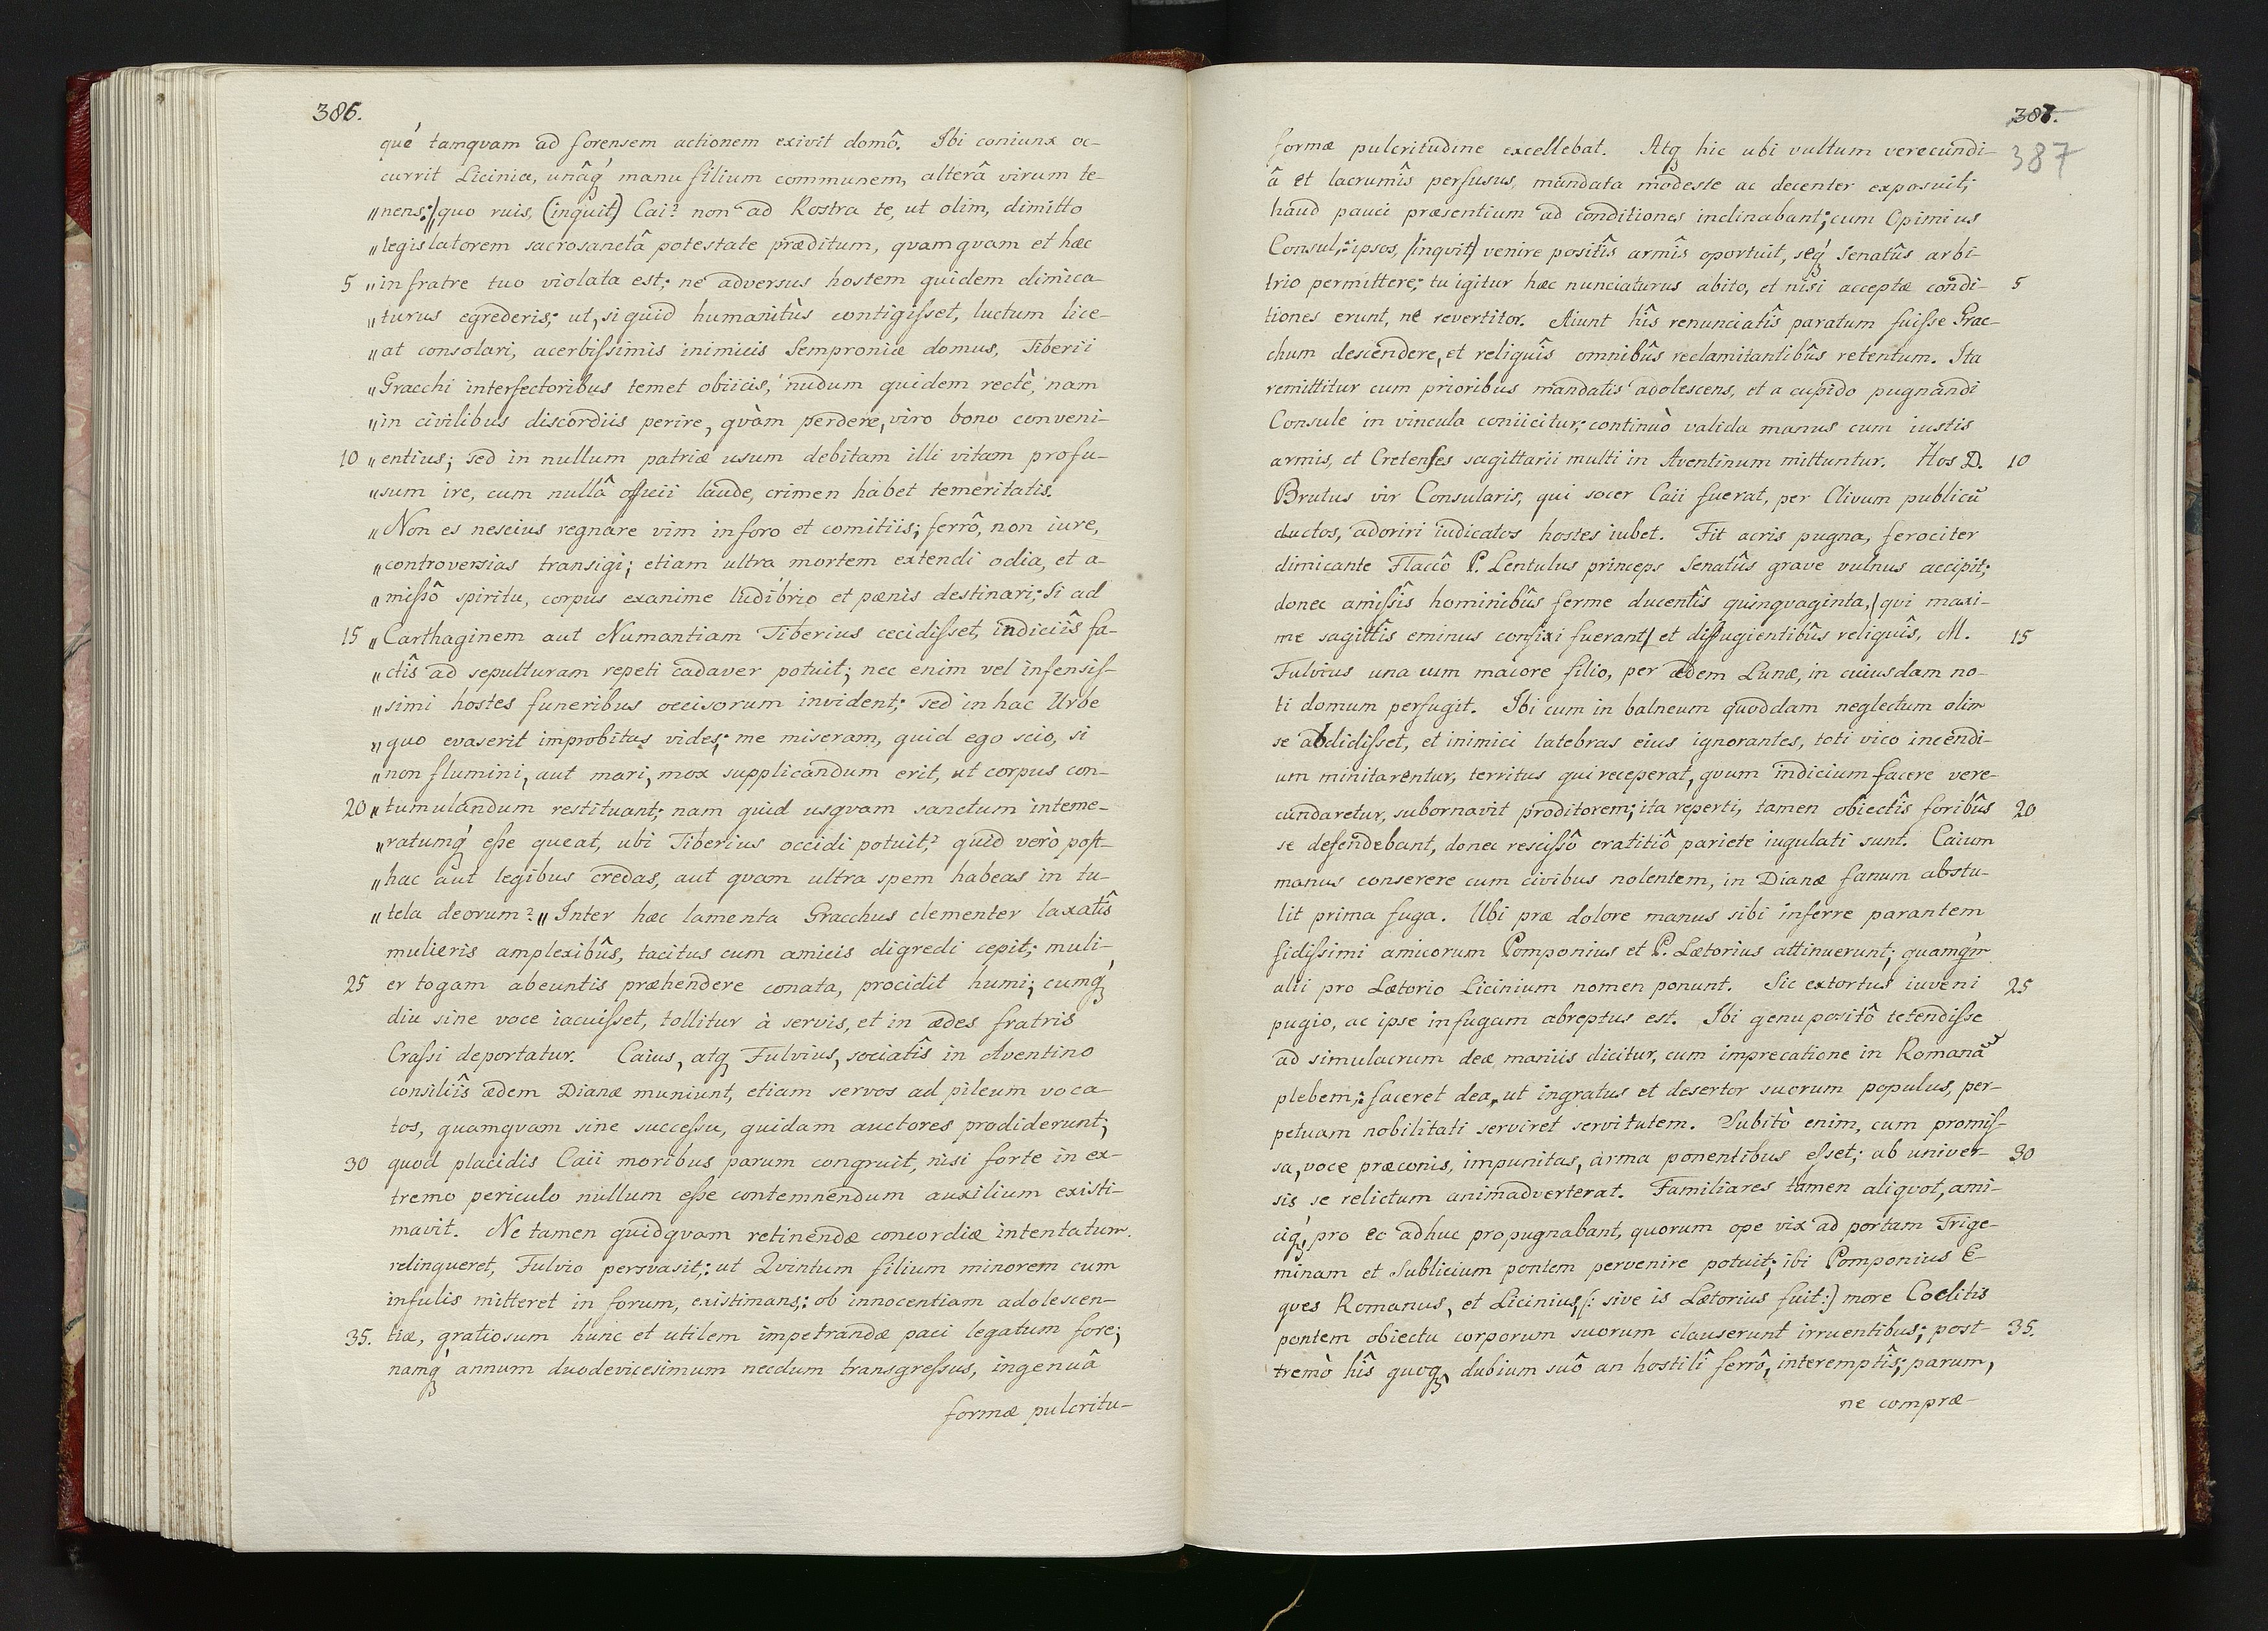 386.
qué tamqvam ad forensem actionem exivit domô. Ibi coniunx oc-
currit Licinia, unâq́ manu filium communem, alterâ virum te-
„nens:/quo ruis, (inquit) Cai? non ad Rostra te, ut olim, dimitto
„legislatorem sacrosanctâ potestate præditum, qvamqvam et hæc
5 „in fratre tuo violata est; ne adversus hostem quidem dimica-
„turus egrederis; ut, si quid humanitùs contigisset, luctum lice-
„at consolari, acerbissimis inimicis Semproniæ domus, Tiberii
„Gracchi interfectoribus temet obiicis, nudum quidem rectè, nam
„in civilibus discordiis perire, qvàm perdere, viro bono conveni-
10 „entius; sed in nullum patriæ usum debitam illi vitam profu-
„sum ire, cum nullâ officii laude, crimen habet temeritatis.
„Non es nescius regnare vim in foro et comitiis; ferrô, non iure,
„controversias transigi; etiam ultra mortem extendi odia, et a-
„missô spiritu, corpus exanime ludibrio et pœnis destinari; Si ad
15 „Carthaginem aut Numantiam Tiberius cecidisset, indiciîs fa-
„ctîs ad sepulturam repeti cadaver potuit; nec enim vel infensis-
„simi hostes funeribus occisorum invident; sed in hac Urbe
„quo evaserit improbitas vides; me miseram, quid ego scio, si
„non flumini, aut mari, mox supplicandum erit, ut corpus con-
20 „tumulandum restituant; nam quid usqvam sanctum inteme-
„ratumq́ esse queat, ubi Tiberius occidi potuit? quid verò post-
„hac aut legibus credas, aut qvam ultra spem habeas in tu-
„tela deorum?„ Inter hæc lamenta Gracchus clementer laxatîs
mulieris amplexibûs, tacitus cum amicis digredi cepit; muli-
25 er togam abeuntis præhendere conata, procidit humi; cumq́
diu sine voce iacuisset, tollitur à servis, et in ædes fratris
Crassi deportatur. Caius, atq Fulvius, sociatîs in Aventino
consiliîs ædem Dianæ muniunt, etiam servos ad pileum voca-
tos, quamqvam sine successu, quidam auctores prodiderunt;
30 quod placidis Caii moribus parum congruit, nisi forte in ex-
tremo periculo nullum esse contemnendum auxilium existi-
mavit. Ne tamen quidqvam retinendæ concordiæ intentatum
relinqueret, Fulvio persvasit,: ut Qvintum filium minorem cum
infulis mitteret in forum, existimans,: ob innocentiam adolescen-
35. tiæ, gratiosum hunc et utilem impetrandæ paci legatum fore;
namq́ annum duodevicesimum necdum transgressus, ingenuâ
formæ pulcritu-
387.
387
formæ pulcritudine excellebat. Atq hic ubi vultum verecundi-
â et lacrumîs perfusus, mandata modeste ac decenter exposuit;
haud pauci præsentium ad conditiones inclinabant; cum Opimius
Consul,: ipsos, /inqvit/ venire positîs armîs oportuit, seq́ Senatûs arbi-
trio permittere; tu igitur hæc nunciaturus abito, et nisi acceptæ condi- 5
tiones erunt, ne revertitor. Aiunt hîs renunciatîs paratum fuisse Grac-
chum descendere, et reliquîs omnibûs reclamitantibûs retentum. Ita
remittitur cum prioribus mandatis adolescens, et a cupido pugnandi
Consule in vincula coniicitur; continuò valida manus cum iustis
armis, et Cretenses sagittarii multi in Aventinum mittuntur. Hos D. 10
Brutus vir Consularis, qui socer Caii fuerat, per Clivum publicū
ductos, adoriri iudicatos hostes iubet. Fit acris pugna, ferociter
dimicante Flaccô P. Lentulus princeps Senatûs grave vulnus accipit;
donec amissîs hominibûs ferme ducentîs quinqvaginta, /qvi maxi-
me sagittîs eminus confixi fuerant/ et diffugientibûs reliquîs, M. 15
Fulvius una cum maiore filio, per ædem Lunæ, in cuiusdam no-
ti domum perfugit. Ibi cum in balneum quoddam neglectum olim
se abdidisset, et inimici latebras eius ignorantes, toti vico incendi-
um minitarentur, territus qui receperat, qvum indicium facere vere-
cundaretur, subornavit proditorem; ita reperti, tamen obiectîs foribûs 20
se defendebant, donec rescissô cratitiô pariete iugulati sunt. Caium
manus conserere cum civibus nolentem, in Dianæ fanum abstu-
lit prima fuga. Ubi præ dolore manus sibi inferre parantem
fidissimi amicorum Pomponius et P. Lætorius attinuerunt; quamq́m
alii pro Lætorio Licinium nomen ponunt. Sic extortus iuveni 25
pugio, ac ipse in fugam abreptus est. Ibi genu positô tetendisse
ad simulacrum deæ maniis dicitur, cum imprecatione in Romanā
plebem,: faceret dea, ut ingratus et desertor suorum populus, per-
petuam nobilitati serviret servitutem. Subitò enim, cum promis-
sa, voce præconis, impunitas, arma ponentibus esset; ab univer- 30
sis se relictum animadverterat. Familiares tamen aliqvot, ami-
ciq́, pro eo adhuc propugnabant, quorum ope vix ad portam Trige-
minam et Sublicium pontem pervenire potuit; ibi Pomponius E-
qves Romanus, et Licinius, /: sive is Lætorius fuit:/ more Coclitis
pontem obiectu corporum suorum clauserunt irruentibus; post- 35.
tremò hîs quoq, dubium suô an hostilî ferrô, interemptîs; parum,
ne compræ-